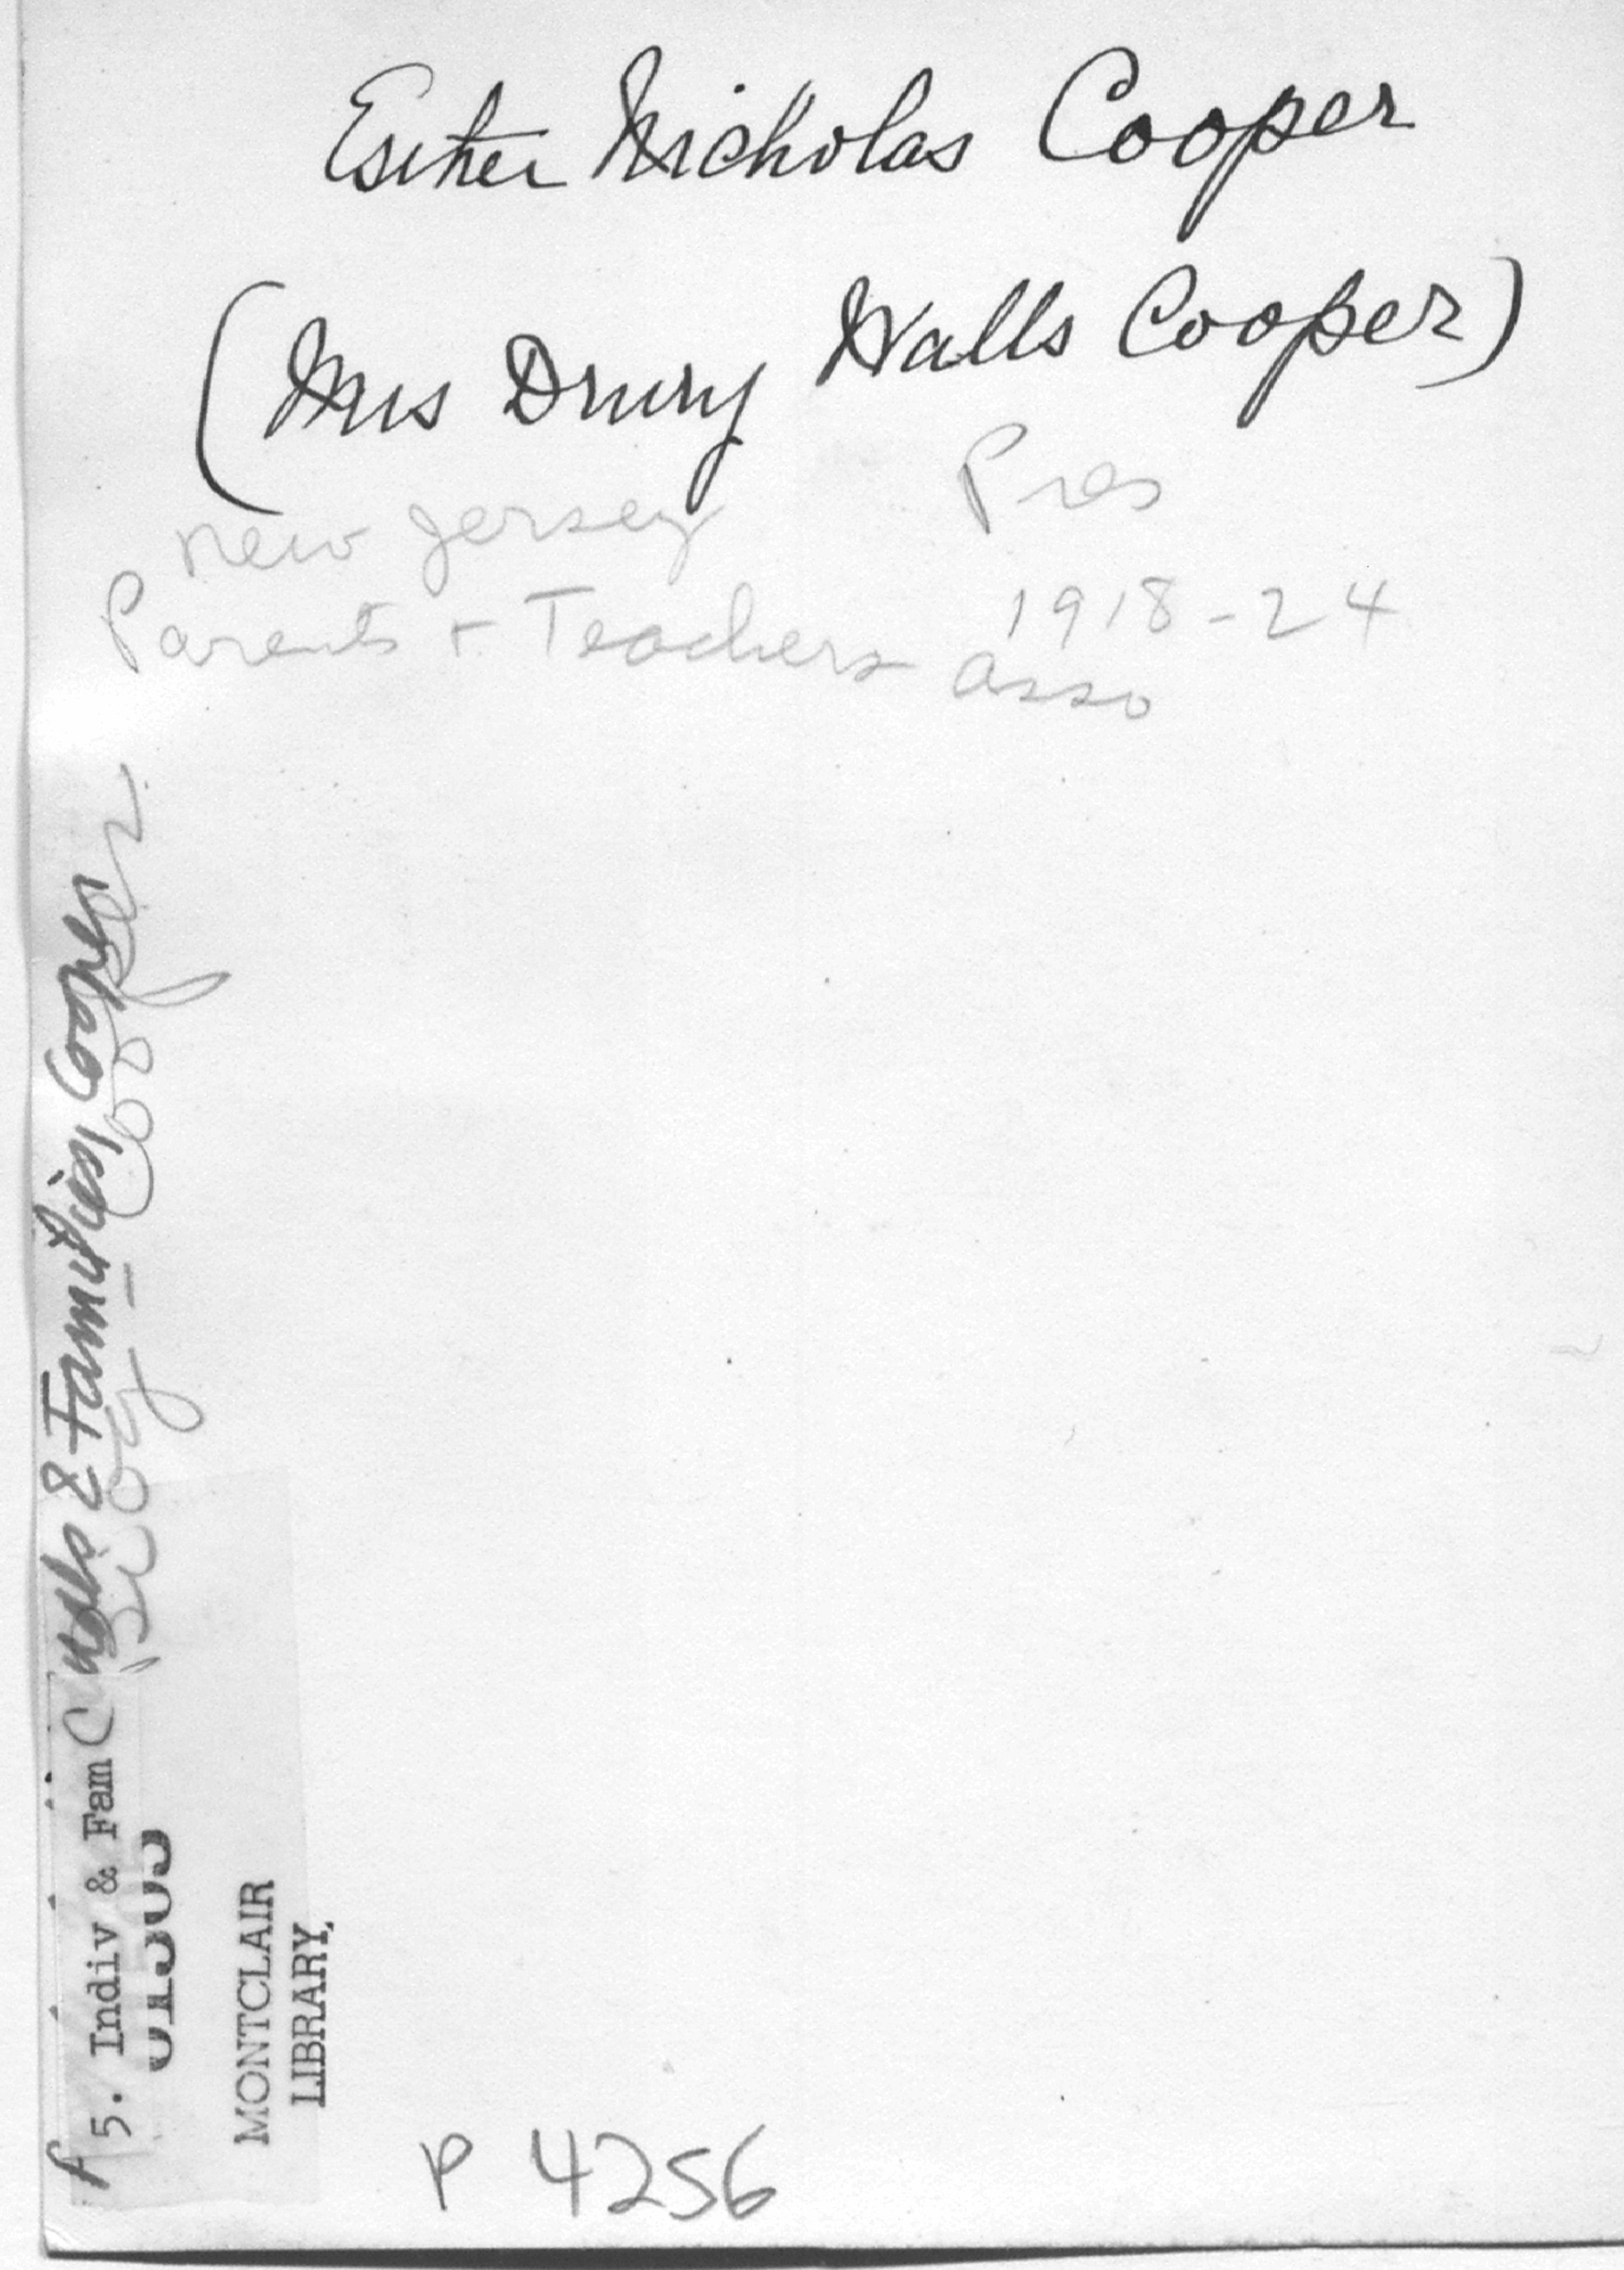 Esther Nicholas Cooper
(Mrs Drury Walls Cooper)
Pres
New Jersey
1918-24
Parents + Teachers Asso
& Families, Cooper
Biog - Cooper
5. Indiv & Fam C
MONTCLAIR
LIBRARY
P 4256